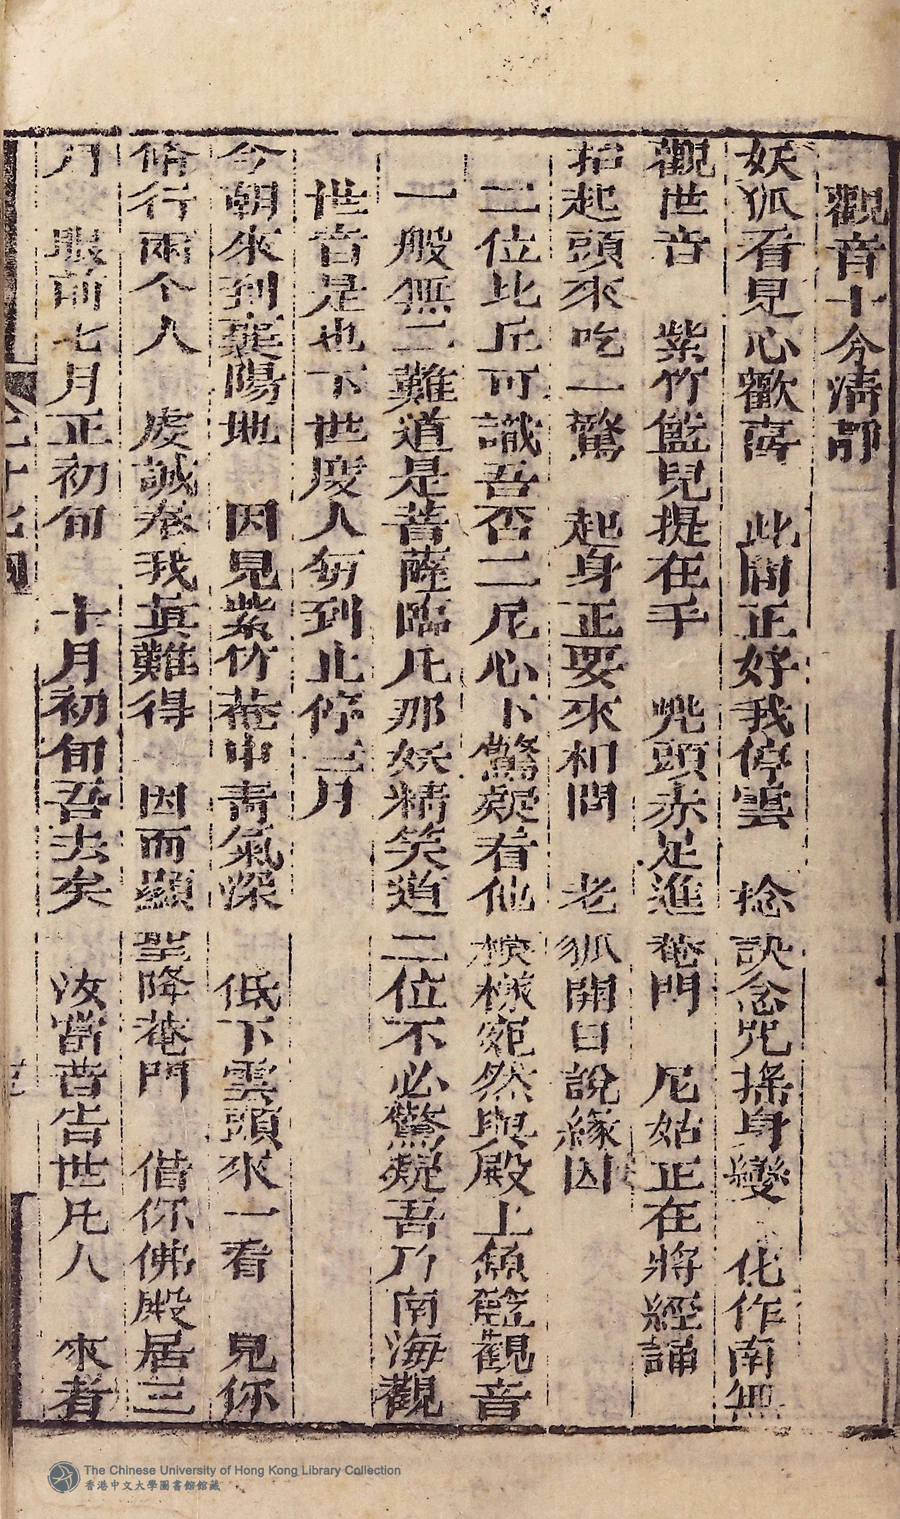 觀音十分清静
妖狐看見心歡喜 此間正好我停雲 捻訣念咒搖身變 化作南無
觀世音 紫竹籃兒提在手 兠頭赤足進菴門 尼姑正在將經誦
抬起頭來吃一驚 起身正要來相問 老狐開口說緣因
二位比丘可識吾否二尼心下驚疑看他模樣宛然與殿上魚籃觀音
一般無二難道是菩薩臨凡那妖精笑道二位不必驚疑吾乃南海觀
世音是也下世度人刼到此停三月
今朝來到襄陽地 因見紫竹菴中青氣深 低下雲頭來一看 見你
脩行兩个人 虔誠奉我真難得 因而顯聖降菴門 借你佛殿居三
月 眼前七月正初旬 十月初旬吾去矣 汝當普告世凡人 來者
The Chinese University of Hong Kong Library Collection
香港中文大學圖書館館藏